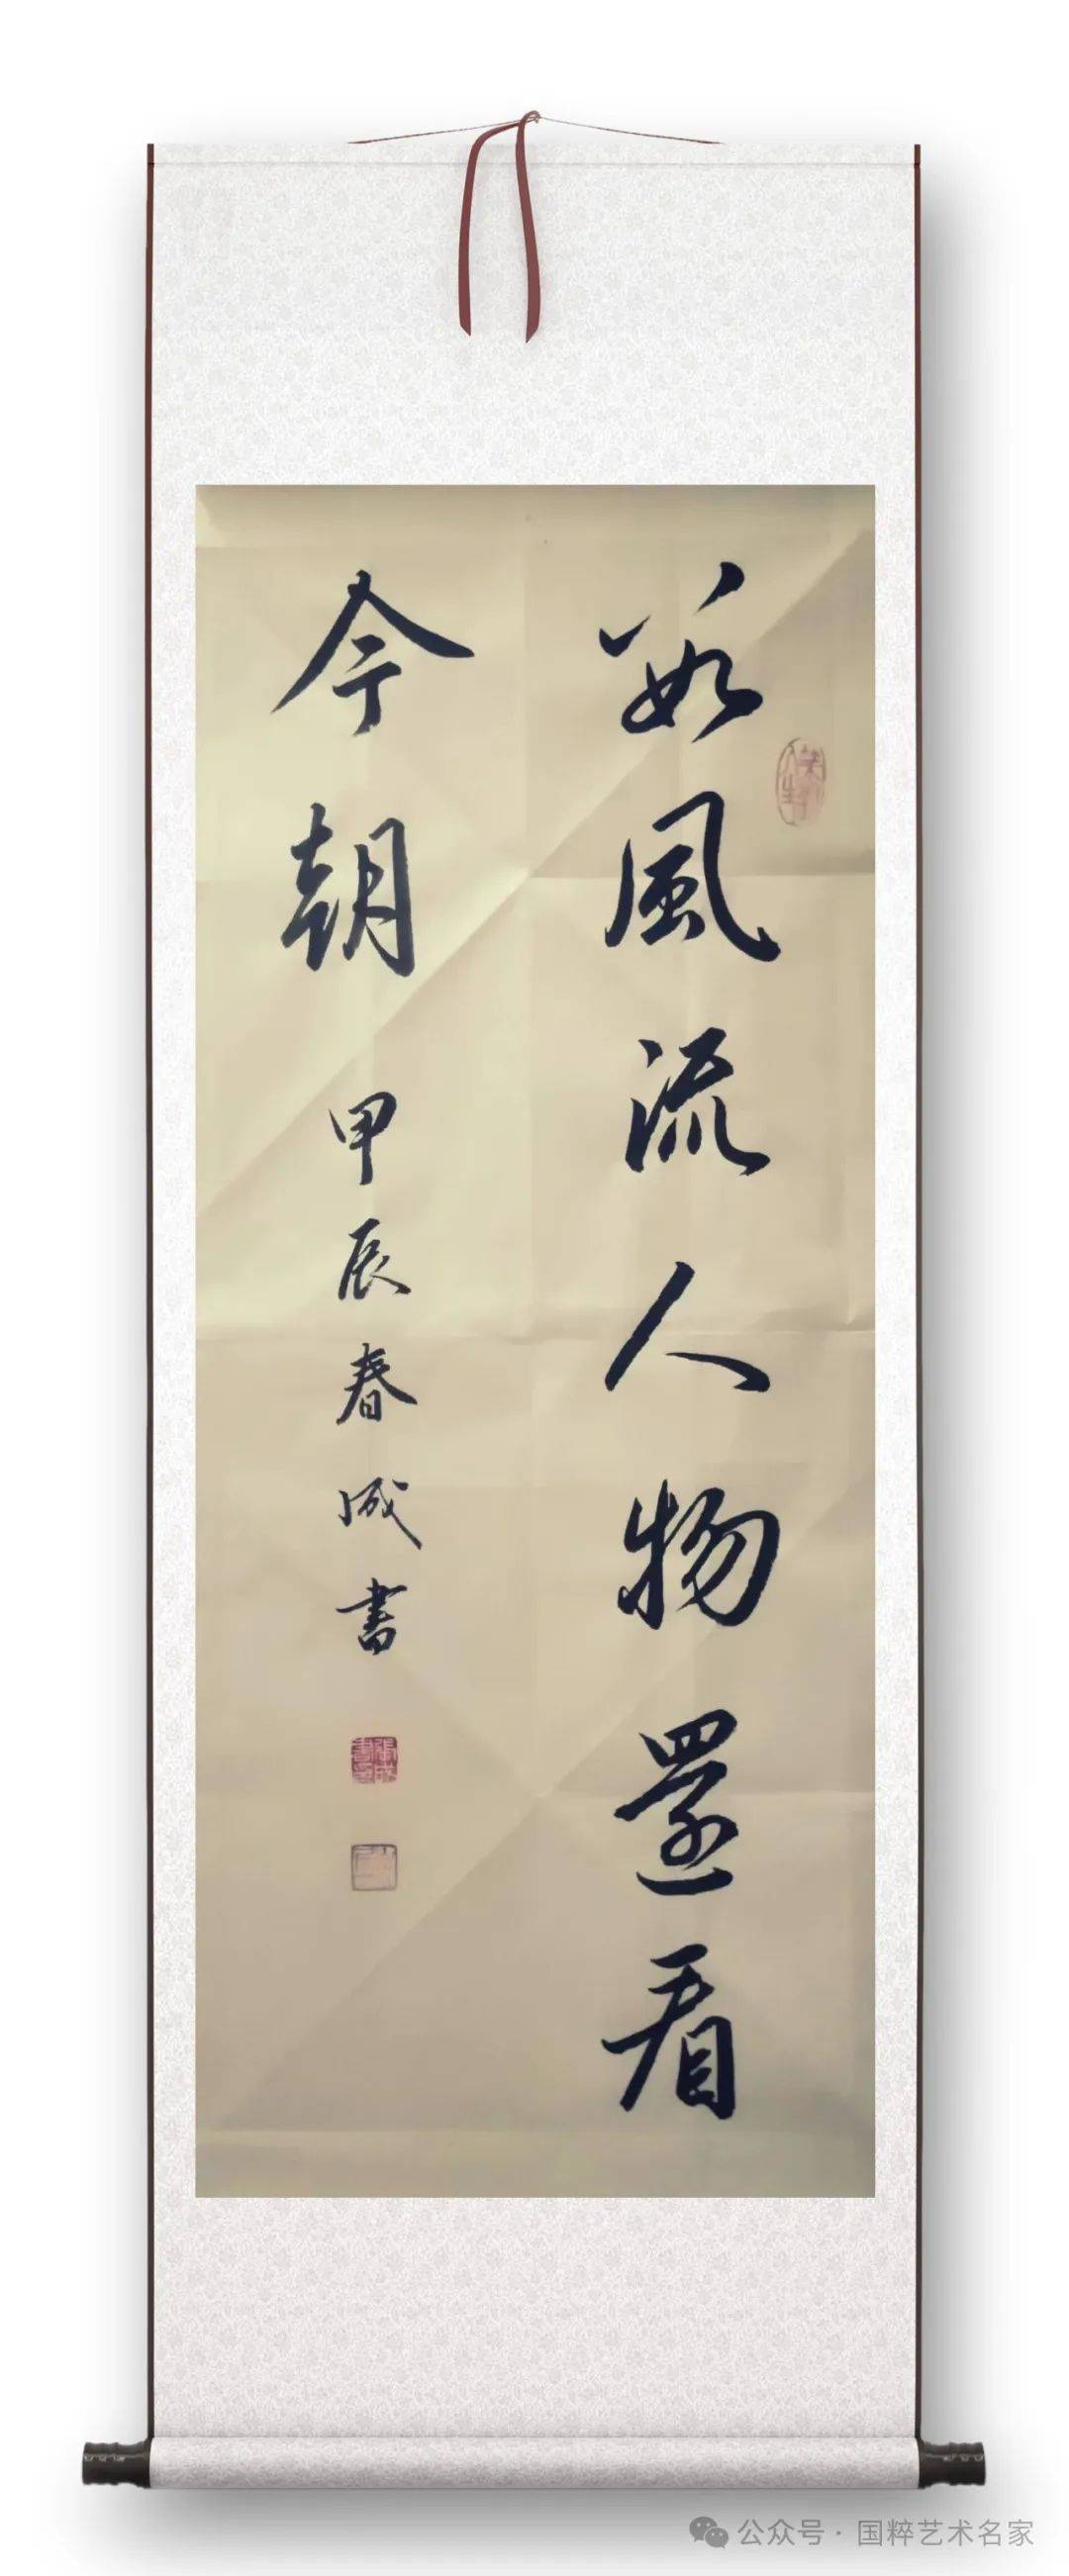 数風流人物還看
今朝
甲辰春成書
公众号·国粹艺术名家